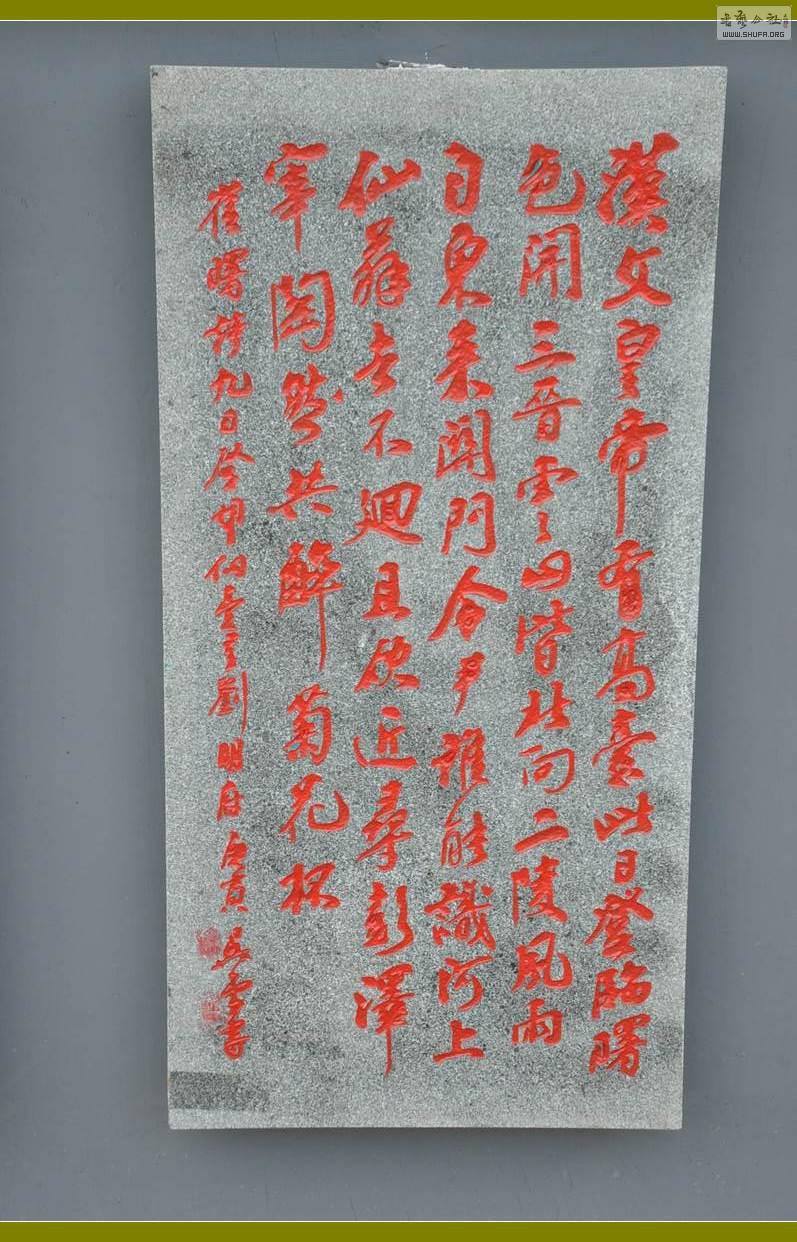 書藝公社
WWW.SHUFA.ORG
漢文皇帝有高臺此日登臨曙
色開三晉雲山皆北向二陵風雨
自東來關門令尹誰能識河上
仙翁去不迴且欲近尋彭澤
宰陶然共醉菊花杯
崔曙詩九日登望仙臺呈劉明府庚寅書